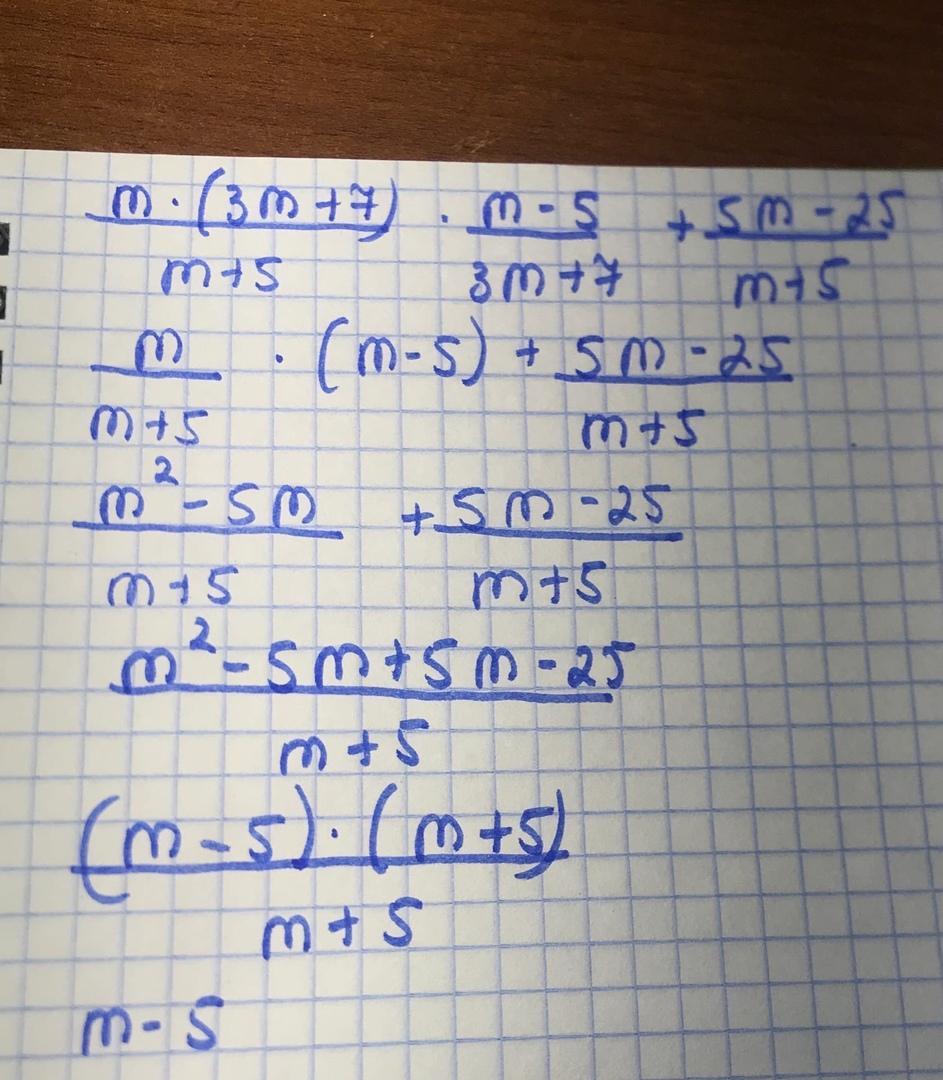 m·(3m+7)/m+5 · m-5/3m+7 + 5m-25/m+5
m/m+5 · (m-5) + 5m-25/m+5
m²-5m/m+5 + 5m-25/m+5
m²-5m+5m-25/m+5
(m-5)·(m+5)/m+5
m-5